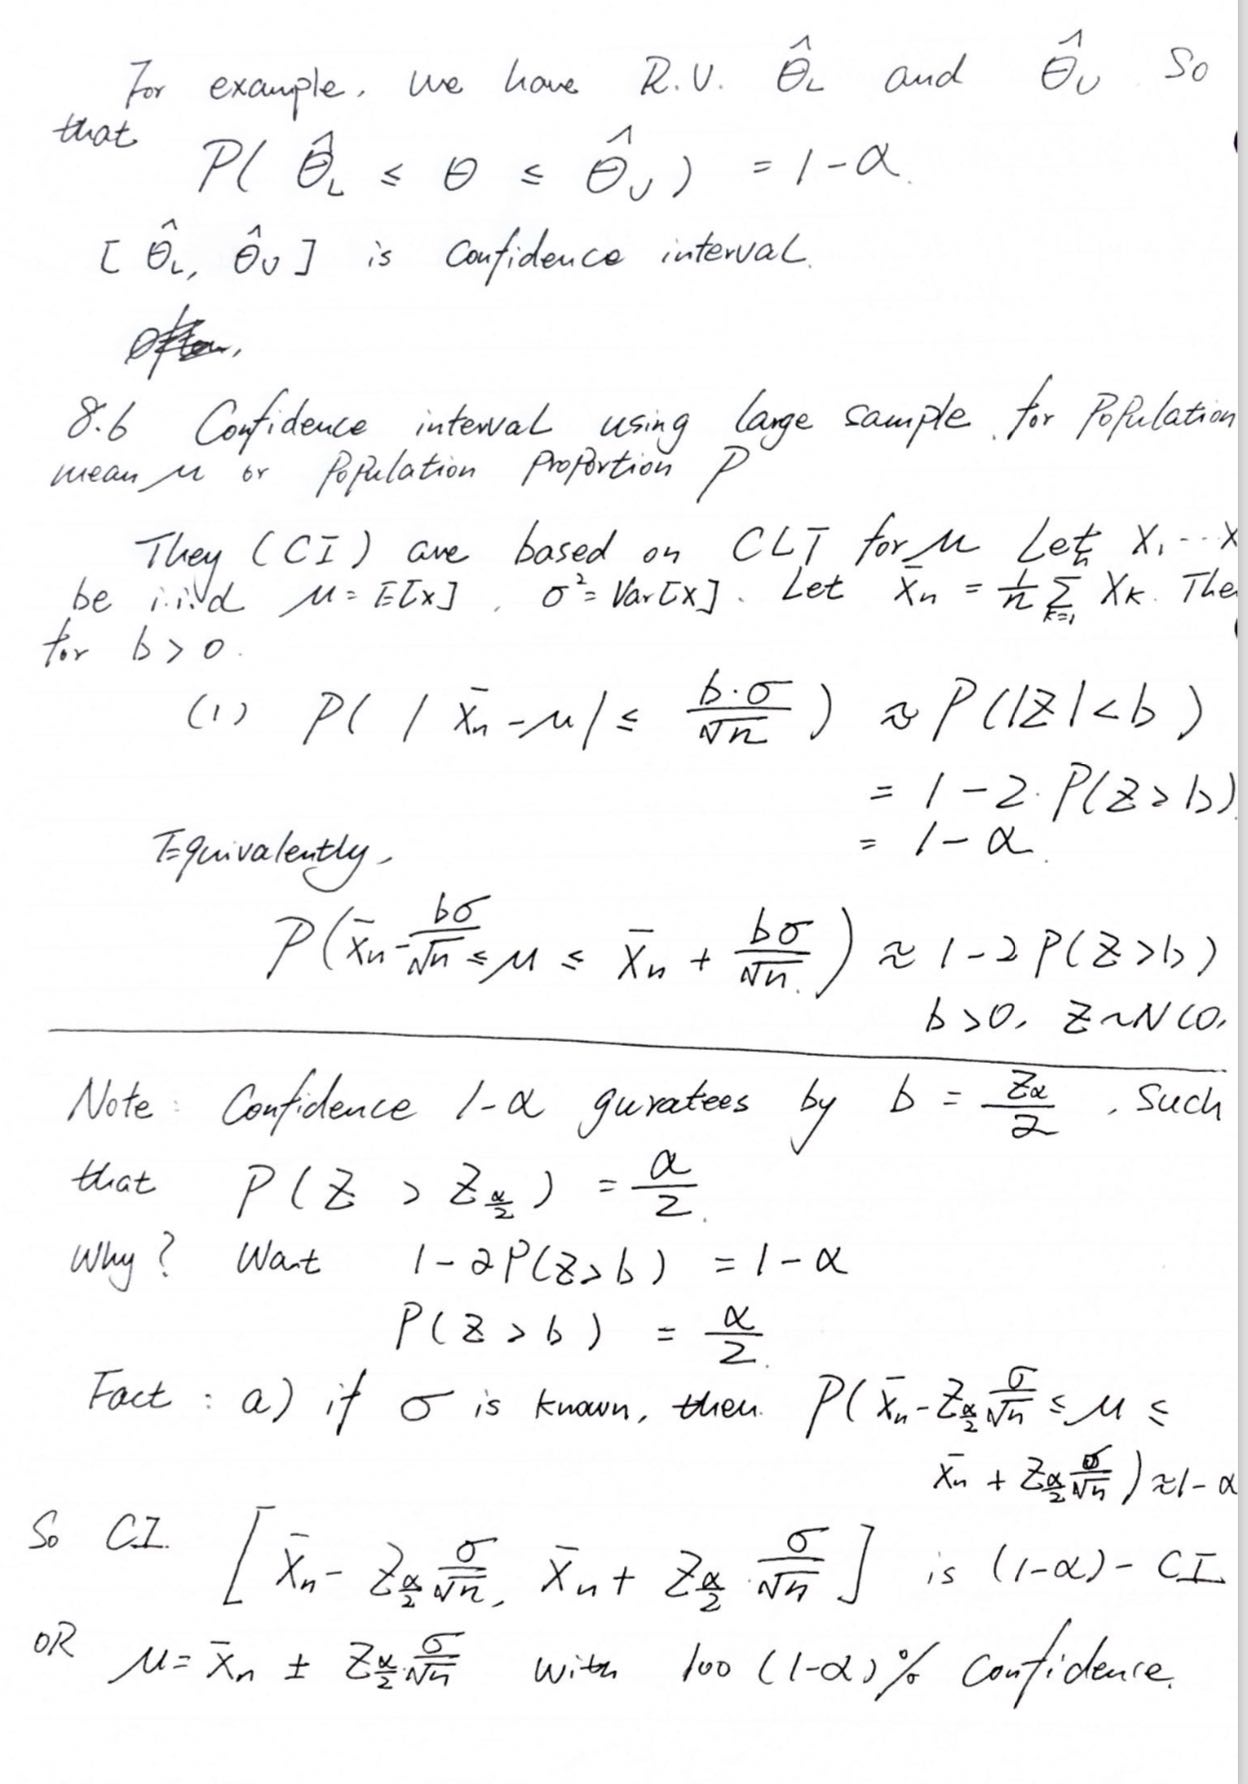 For example, we have R.V. θ̂_L and θ̂_U so
that
P( θ̂_L ≤ θ ≤ θ̂_U ) = 1-α.
[ θ̂_L, θ̂_U ] is confidence interval.
8.6 Confidence interval using large sample for Population
mean μ or Population Proportion P
They (CI) are based on CLT for μ Let X₁ -- X
be i.i.d μ = E[x], σ² = Var[x]. Let X̄n = 1/n Σ_{k=1}^n X_K. The
for b > 0.
(1) P( | X̄n - μ | ≤ b·σ/√n ) ≈ P(|Z| < b )
= 1 - 2·P(Z > b)
Equivalently, = 1 - α.
P( X̄n - bσ/√n ≤ μ ≤ X̄n + bσ/√n. ) ≈ 1 - 2 P(Z > b)
b > 0, Z ~ N(0,
Note: Confidence 1-α guratees by b = Zα/2, such
that P( Z > Z_{α/2} ) = α/2.
Why? Want 1 - 2P(Z > b) = 1 - α
P( Z > b ) = α/2.
Fact: a) if σ is known, then. P( X̄n - Z_{α/2} σ/√n ≤ μ ≤
X̄n + Z_{α/2} σ/√n ) ≈ 1 - α
So C.I. [ X̄n - Z_{α/2} σ/√n, X̄n + Z_{α/2} · σ/√n ] is (1-α) - CI
OR μ = X̄n ± Z_{α/2} · σ/√n with 100 (1-α)% confidence.